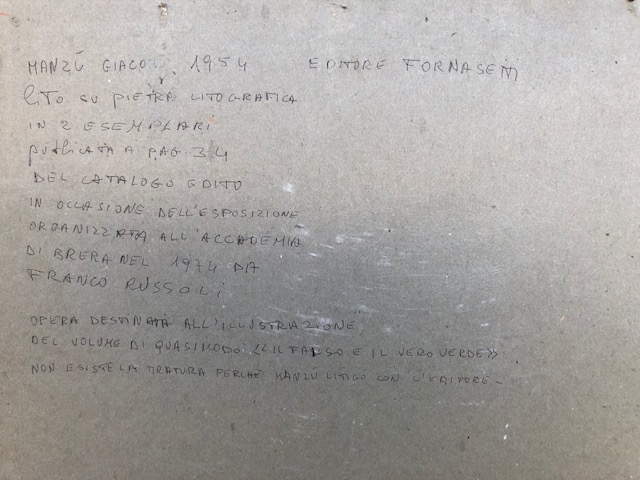 MANZÚ GIACO 1954 EDITORE FORNASETTI
LITO SU PIETRA LITOGRAFICA
IN 2 ESEMPLARI
PUBLICATA A PAG 34
DEL CATALOGO EDITO
IN OCCASIONE DELL'ESPOSIZIONE
ORGANIZZATA ALL'ACCADEMIA
DI BRERA NEL 1974 DA
FRANCO RUSSOLI
OPERA DESTINATA ALL'ILLUSTRAZIONE
DEL VOLUME DI QUASIMODO <<IL FALSO E IL VERO VERDE>>
NON ESISTE LA TIRATURA PERCHÉ MANZÚ LITIGÒ CON L'EDITORE-